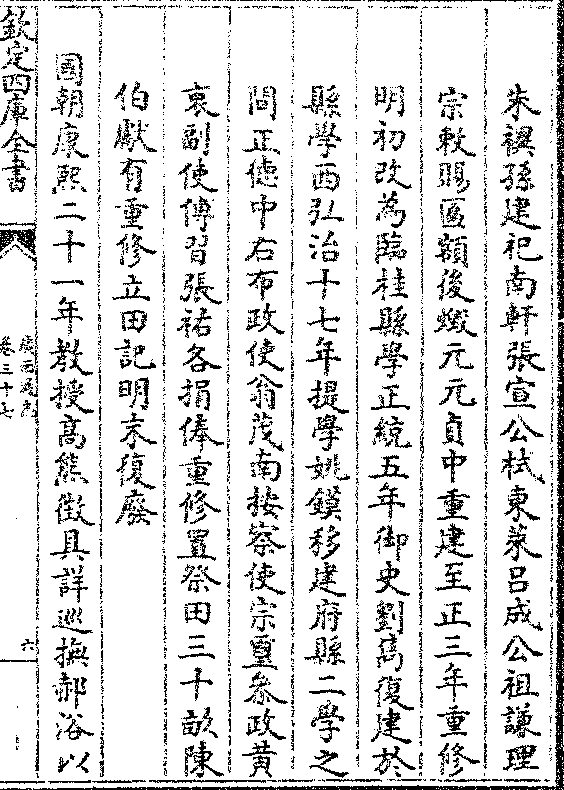 朱禩孫建祀南軒張宣公栻東萊呂成公祖謙理
宗敕賜匾額後燬元元貞中重建至正三年重修
明初改為臨桂縣學正統五年御史劉嵩復建於
縣學西弘治十七年提學姚鏌移建府縣二學之
間正德中右布政使翁茂南按察使宗璽叅政黄
衷副使傅習張祐各捐俸重修置祭田三十畝陳
伯獻有重修立田記明末復廢
國朝康熙二十一年教授高熊徵具詳巡撫郝浴以
欽定四庫全書
廣西通志
卷三十七
六